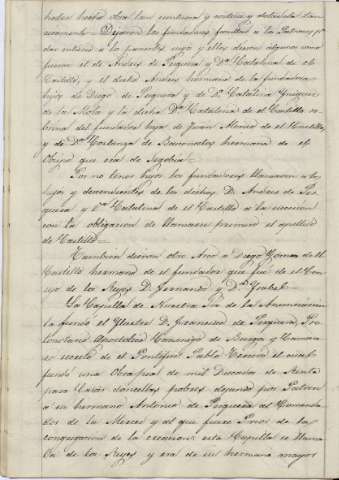 haden hasta otra tan
Dejaron los fundadores facultad a los Patronos pª
dar entierro a la parentes suyo y ellos dieron algunos como
fueron el de Andres de Pesquera y Dª Catalina de el
Castillo, y el dicho Andres hermano de la fundadora
hijo de Diego de Pesquera y de Dª Catalina
de la Mota y la dicha Dª Catalina de el Castillo so-
brina del fundador hija de Juan Alonso de el Castillo
y de Dª Costanza de Barrionuebo hermana de el
Obispo que era de Segobia.
Por no tener hijos los fundadores llamaron a los
hijos y descendientes de los dichos D. Andres de Pes-
quera y Dª Catalina de el Castillo a la sucesion
con la obligacion de llamarse primero el apellido
de Castillo.
Tambien dieron otro Arco a Diego Gomez de el
Castillo hermano de el fundador que fue de el Con-
sejo de los Reyes D. Fernando y Dª Ysabel.
La Capilla de Nuestra Sra de la Anunciacion
la fundó el Ylustre D. Francisco de Pesquera Pro-
tonotario Apostolico Canonigo de Burgos y Camare-
ro secreto de el Pontifice Pablo Tercero el cual
fundo una Obra pia de mil Ducados de Renta
para Casar doncellas pobres dejando por Patron
a su hermano Antonio de Pesquera al Comenda-
dor de la Merced y al que fuese Prior de la
congregacion de la creacion: esta Capilla se llama-
ba de los Reyes y era de su hermano mayor